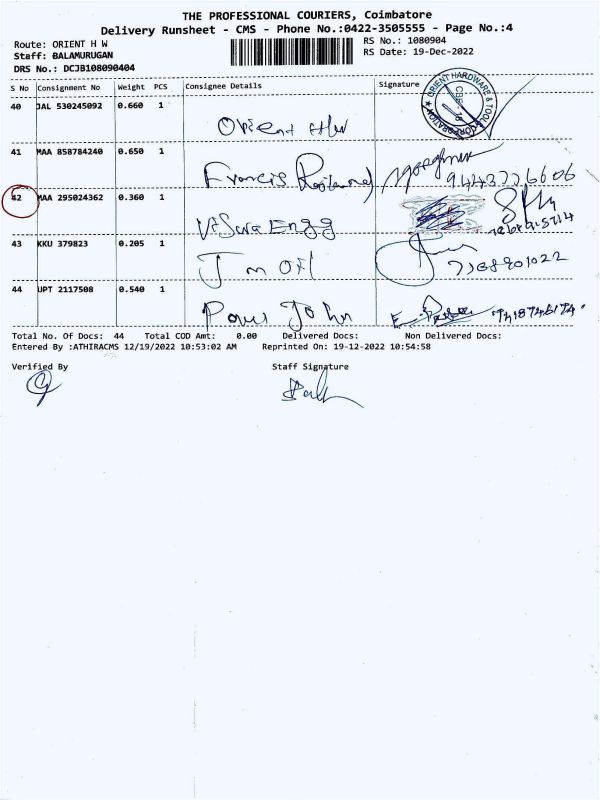 THE PROFESSIONAL COURIERS, Coimbatore
Delivery Runsheet - CMS - Phone No.:0422-3505555 - Page No.:4
Route: ORIENT H W
RS No.: 1080904
Staff: BALAMURUGAN
RS Date: 19-Dec-2022
DRS No.: DCJB108090404
S No Consignment No Weight PCS Consignee Details Signature
40 JAL 530245092 0.660 1
Orient HW
ORIENT HARDWARE & TOOLS CORPORATION
CBE-18
41 MAA 858784240 0.650 1
Francis
42 MAA 295024362 0.360 1
Engg
43 KKU 379823 0.205 1
J m Oil
7708901022
44 UPT 2117508 0.540 1
John
Total No. Of Docs: 44 Total COD Amt: 0.00 Delivered Docs: Non Delivered Docs:
Entered By :ATHIRACMS 12/19/2022 10:53:02 AM Reprinted On: 19-12-2022 10:54:58
Verified By Staff Signature